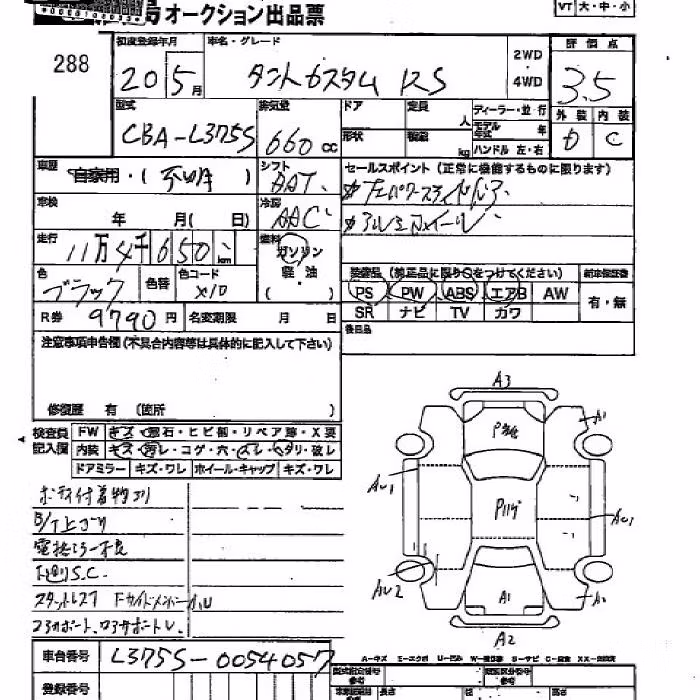 オークション出品票
VT 大・中・小
288
初度登録年月
20 5 月
車名・グレード
タントカスタム RS
2WD
4WD
評価点
3.5
型式
CBA-L375S
排気量
660 cc
ドア
定員
人
ディーラー・並行
外装
内装
形状
積載
kg
モデル年式
年
ハンドル 左・右
D
C
車歴
自家用・(不明)
シフト
AAT
セールスポイント(正常に機能するものに限ります)
車検
年 月( 日)
冷房
AAC
アルミホイール
走行
11万4千650 km
燃料
ガソリン
軽油
( )
色
ブラック
色替
色コード
X10
装備品(純正品に限り○をつけてください)
新車保証書
PS PW ABS エアB AW
有・無
SR ナビ TV カワ
R券
9790 円
名変期限 月 日
後日品
注意事項申告欄(不具合内容等は具体的に記入して下さい)
修復歴 有 (箇所 )
検査員記入欄
FW キズ・飛石・ヒビ割・リペア跡・X要
内装 キズ・汚レ・コゲ・穴・スレ・ヘタリ・破レ
ドアミラー キズ・ワレ ホイール・キャップ キズ・ワレ
ボディ付着物
電格ミラー不良
下廻りS.C.
A3
A1
AU1
AU1
AU2
A1
A2
A-キズ E-エクボ U-凹ミ W-補修跡 S-サビ C-腐食 XX-交換済
車台番号
L375S-0054057
登録番号